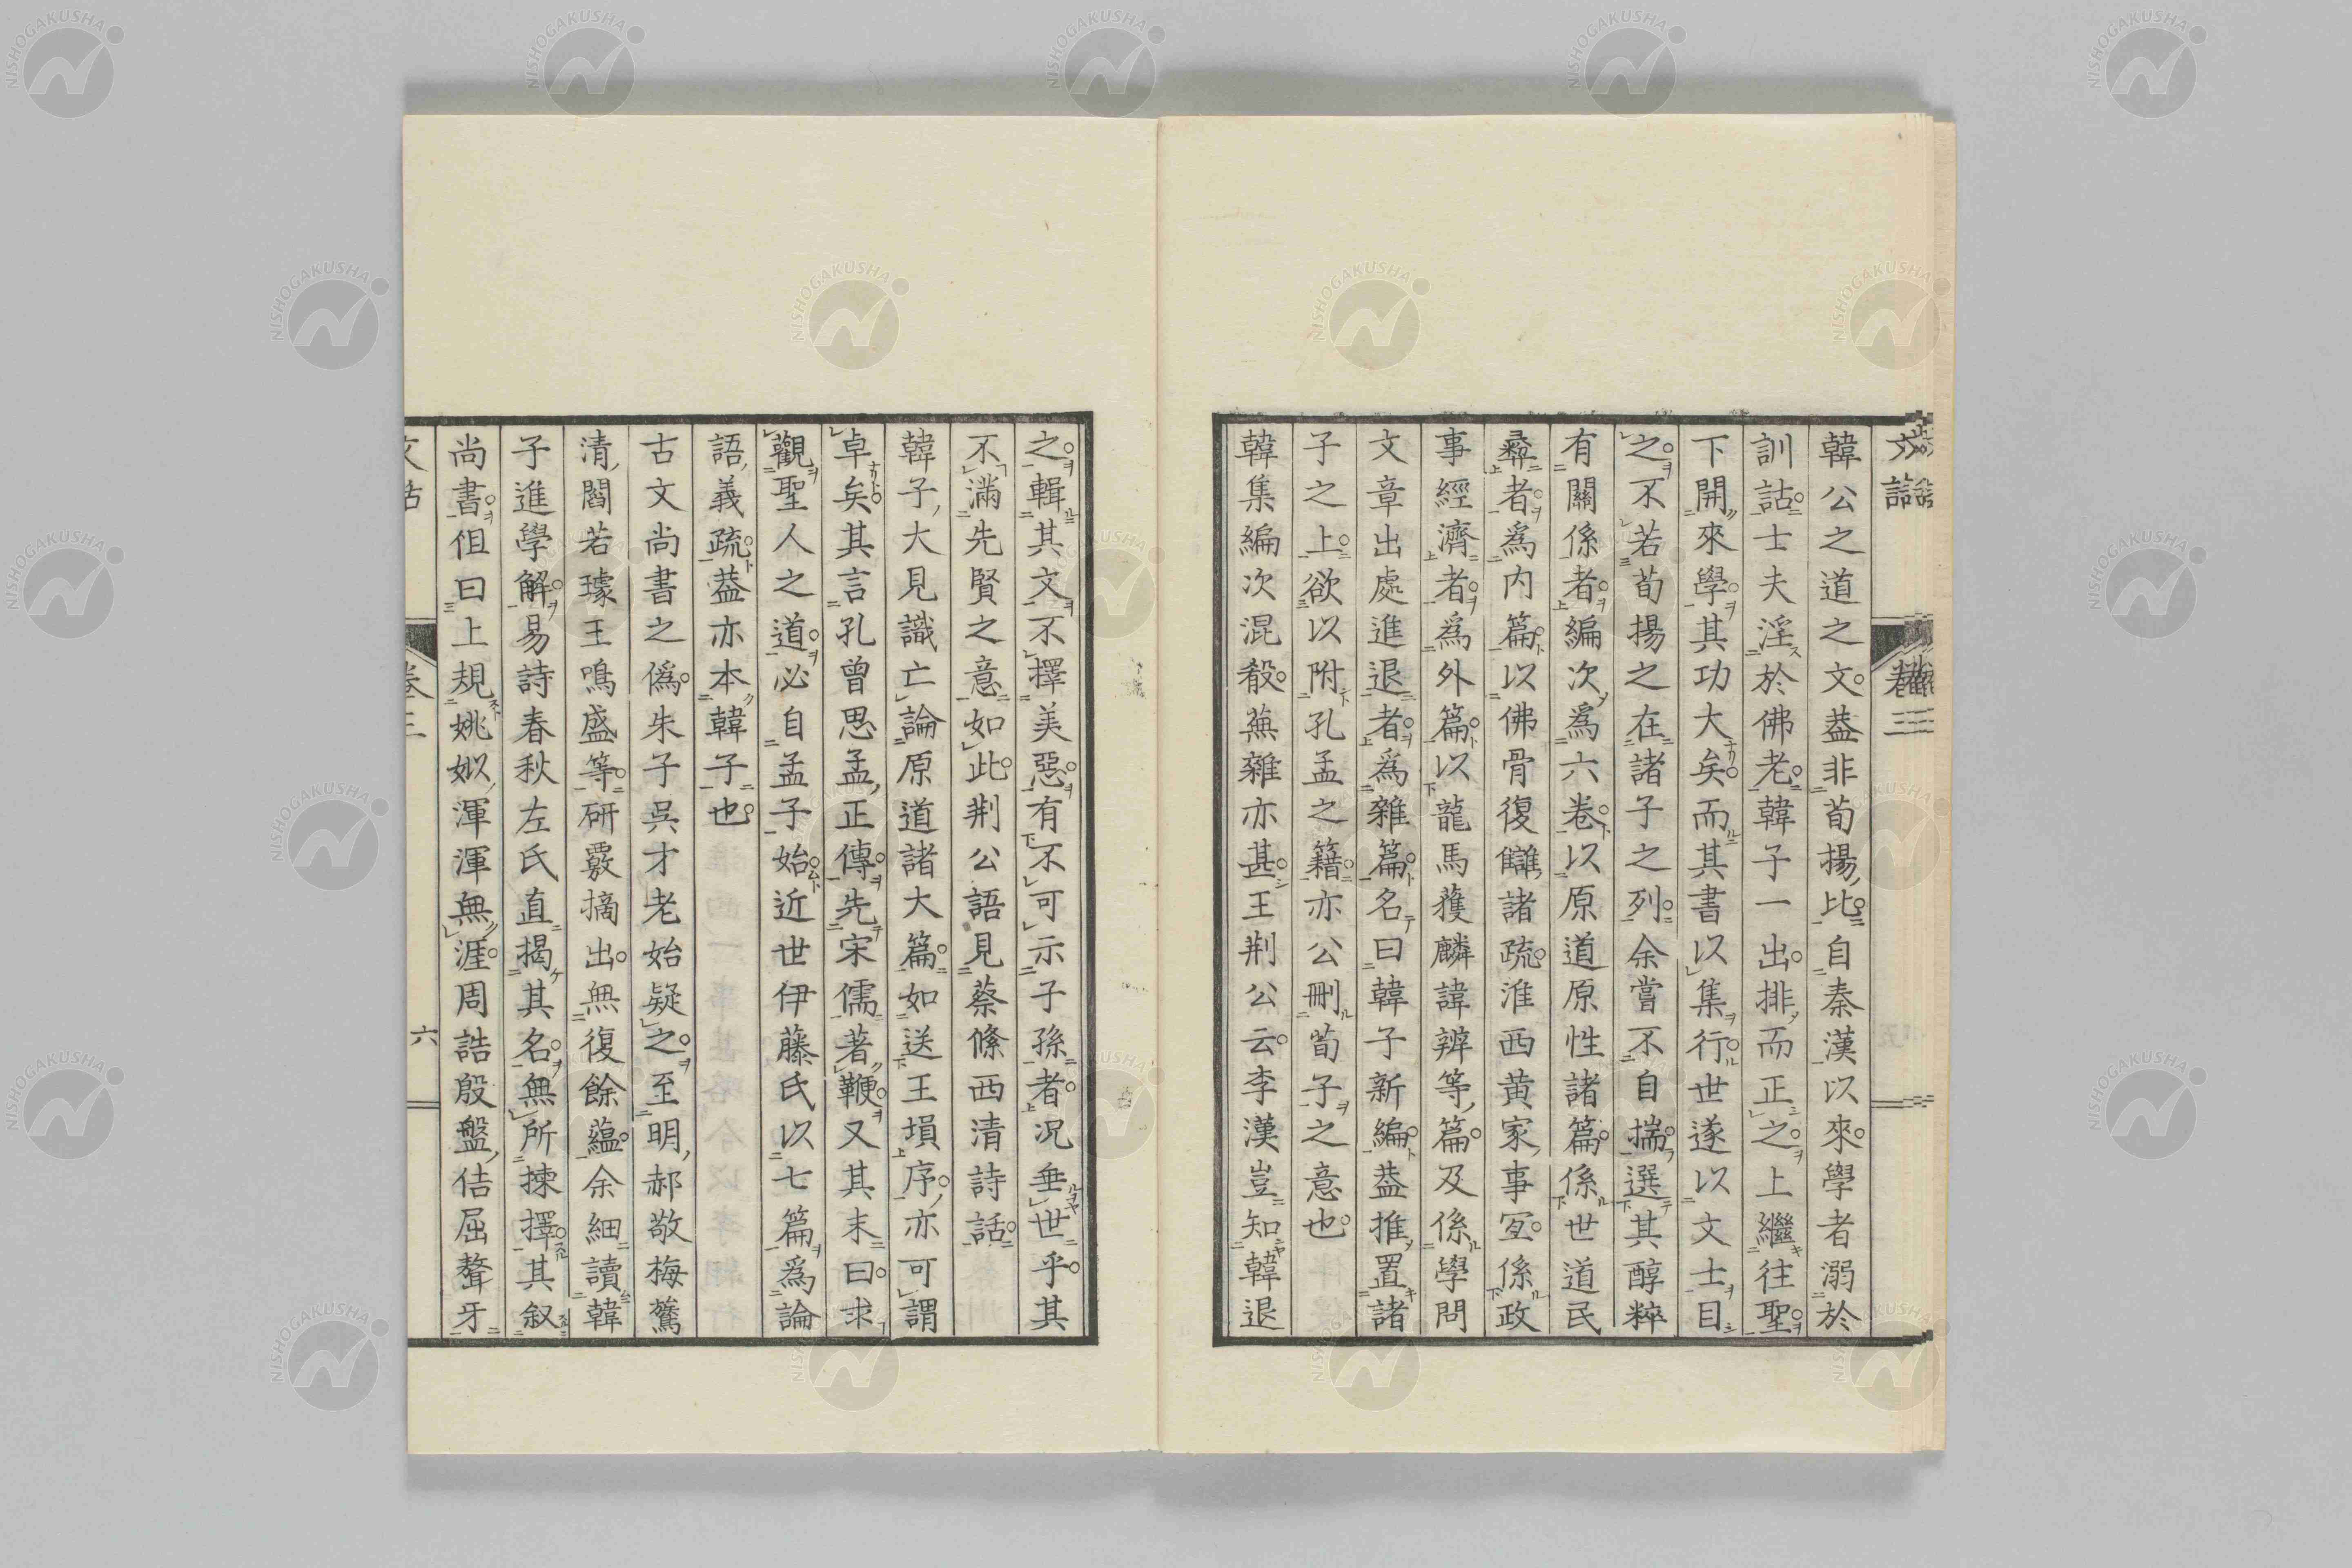 文話 卷三
韓公之道之文。葢非荀揚比。自秦漢以來。學者溺於
訓詁。士夫淫於佛老。韓子一出。排而正之。上繼往聖。
下開來學。其功大矣。而其書以集行。世遂以文士目
之。不若荀揚之在諸子之列。余嘗不自揣。選其醇粹
有關係者。編次爲六卷。以原道原性諸篇。係世道民
彛者。爲内篇。以佛骨復讎諸疏。淮西黄家事宐。係政
事經濟者。爲外篇。以龍馬獲麟諱辨等篇。及係學問
文章出處進退者。爲雜篇。名曰韓子新編。葢推置諸
子之上。欲以附孔孟之籍。亦公刪荀子之意也。
韓集編次混殽。蕪雜亦甚。王荆公云。李漢豈知韓退
之。輯其文。不擇美惡。有不可示子孫者。况垂世乎。其
不滿先賢之意如此。荆公語見蔡絛西清詩話。
韓子大見識。亡論原道諸大篇。如送王塤序。亦可謂
卓矣。其言孔曾思孟正傳。先宋儒著鞭。又其末曰。求
觀聖人之道。必自孟子始。近世伊藤氏以七篇爲論
語義疏。葢亦本韓子也。
古文尚書之僞。朱子吳才老始疑之。至明郝敬梅鷟
清閻若璩王鳴盛等。研覈摘出。無復餘蘊。余細讀韓
子進學解。易詩春秋左氏直揭其名。無所揀擇。其叙
尚書。但曰上規姚姒。渾渾無涯。周誥殷盤。佶屈聱牙
文話 卷三 六